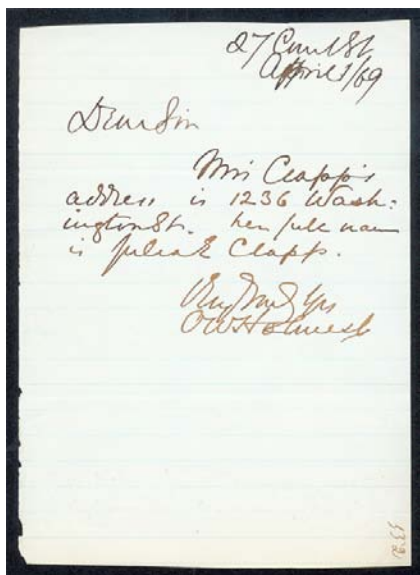 27 Court St
April 1/69
Dear Sir
Mrs Clapp's
address is 1236 Wash-
ington St. her full name
is Julia E Clapp.
Very Truly Yrs
OW Holmes Jr